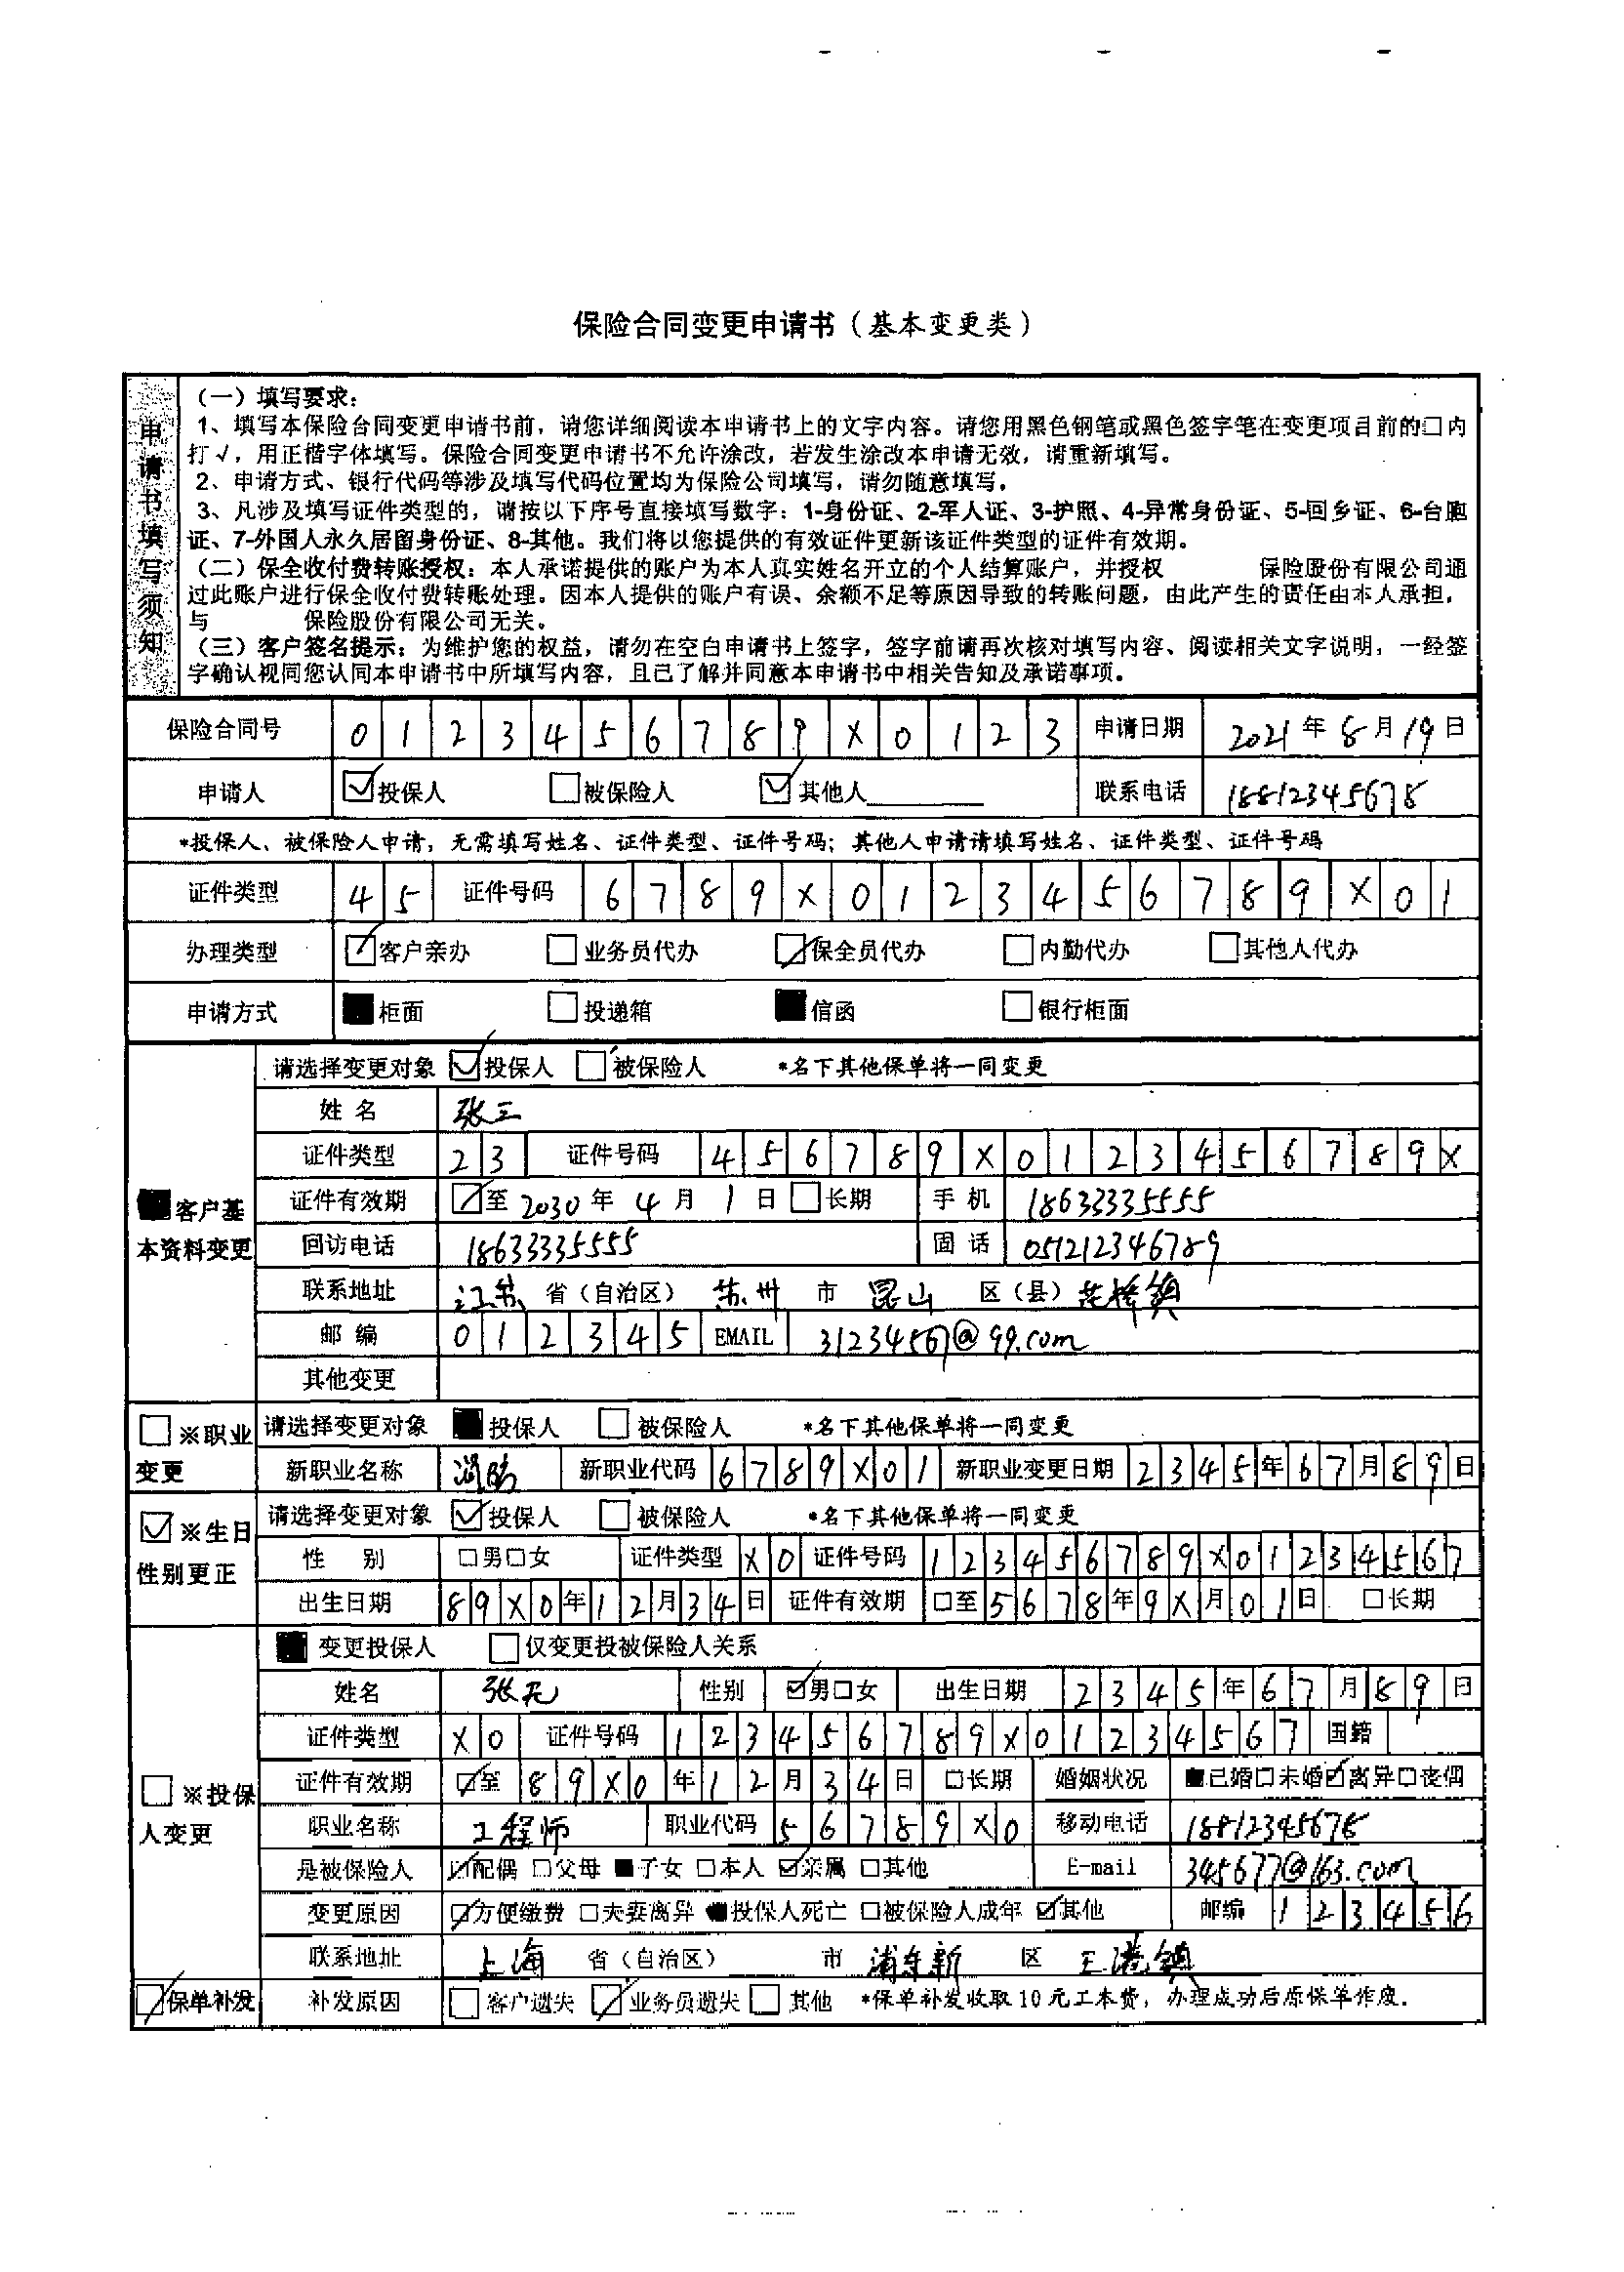 保险合同变更申请书（基本变更类）
申请书填写须知
（一）填写要求：
1、填写本保险合同变更申请书前，请您详细阅读本申请书上的文字内容。请您用黑色钢笔或黑色签字笔在变更项目前的□内
打√，用正楷字体填写。保险合同变更申请书不允许涂改，若发生涂改本申请无效，请重新填写。
2、申请方式、银行代码等涉及填写代码位置均为保险公司填写，请勿随意填写。
3、凡涉及填写证件类型的，请按以下序号直接填写数字：1-身份证、2-军人证、3-护照、4-异常身份证、5-回乡证、6-台胞
证、7-外国人永久居留身份证、8-其他。我们将以您提供的有效证件更新该证件类型的证件有效期。
（二）保全收付费转账授权：本人承诺提供的账户为本人真实姓名开立的个人结算账户，并授权 保险股份有限公司通
过此账户进行保全收付费转账处理。因本人提供的账户有误、余额不足等原因导致的转账问题，由此产生的责任由本人承担，
与 保险股份有限公司无关。
（三）客户签名提示：为维护您的权益，请勿在空白申请书上签字，签字前请再次核对填写内容、阅读相关文字说明，一经签
字确认视同您认同本申请书中所填写内容，且已了解并同意本申请书中相关告知及承诺事项。
保险合同号 0123456789X0123 申请日期 2021年8月19日
申请人 ☑投保人 □被保险人 ☑其他人 联系电话 18812345678
*投保人、被保险人申请，无需填写姓名、证件类型、证件号码；其他人申请请填写姓名、证件类型、证件号码
证件类型 45 证件号码 6789X0123456789X01
办理类型 ☑客户亲办 □业务员代办 ☑保全员代办 □内勤代办 □其他人代办
申请方式 ■柜面 □投递箱 ■信函 □银行柜面
■客户基本资料变更
请选择变更对象 ☑投保人 □被保险人 *名下其他保单将一同变更
姓 名 张三
证件类型 23 证件号码 456789X0123456789X
证件有效期 ☑至2030年4月1日 □长期 手 机 18633335555
回访电话 18633335555 固 话 051212346789
联系地址 江苏 省（自治区） 苏州 市 昆山 区（县）花桥镇
邮 编 012345 EMAIL 31234567@99.com
其他变更
□※职业变更
请选择变更对象 ■投保人 □被保险人 *名下其他保单将一同变更
新职业名称 新职业代码 6789X01 新职业变更日期 2345年67月89日
☑※生日性别更正
请选择变更对象 ☑投保人 □被保险人 *名下其他保单将一同变更
性 别 □男□女 证件类型 X0 证件号码 123456789X01234567
出生日期 89X0年12月34日 证件有效期 □至5678年9X月01日 □长期
□※投保人变更
■变更投保人 □仅变更投被保险人关系
姓名 张无 性别 ☑男□女 出生日期 2345年67月89日
证件类型 X0 证件号码 123456789X01234567 国籍
证件有效期 ☑至89X0年12月34日 □长期 婚姻状况 ■已婚□未婚☑离异□丧偶
职业名称 工程师 职业代码 56789X0 移动电话 18812345678
是被保险人 ☑配偶 □父母 ■子女 □本人 ☑亲属 □其他 E-mail 345677@163.com
变更原因 ☑方便缴费 □夫妻离异 ■投保人死亡 □被保险人成年 ☑其他 邮编 123456
联系地址 上海 省（自治区） 市 浦东新 区 王港镇
☑保单补发 补发原因 □客户遗失 ☑业务员遗失 □其他 *保单补发收取10元工本费，办理成功后原保单作废．